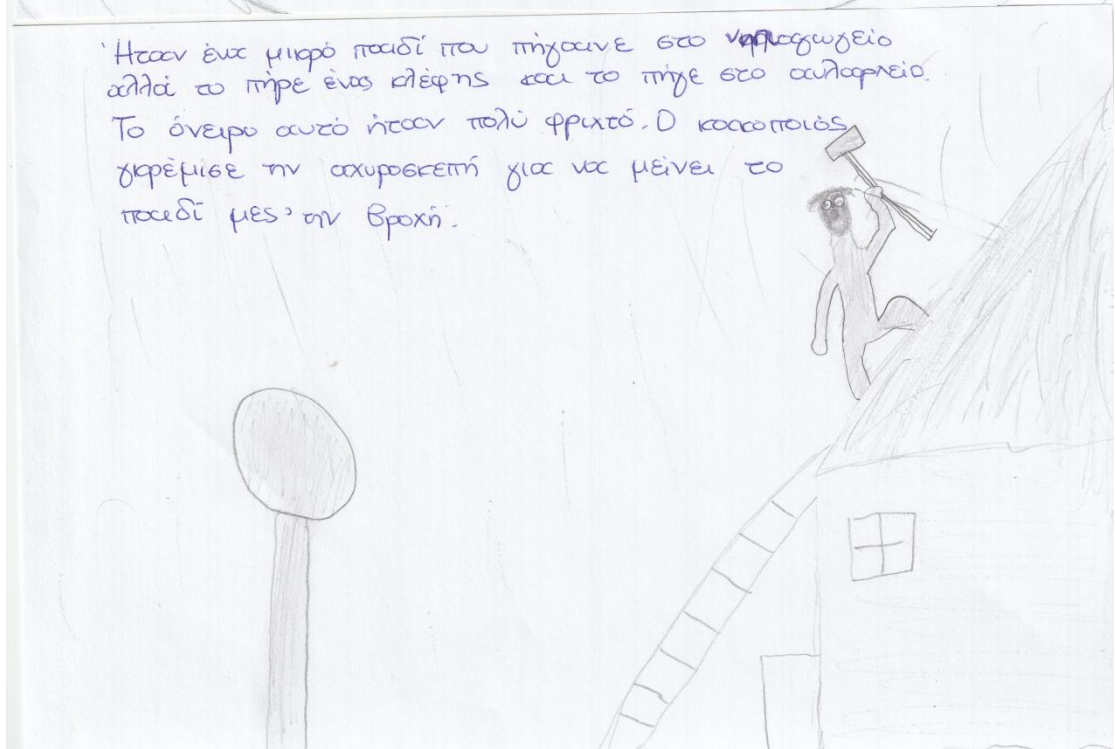 Ήταν ένα μικρό παιδί που πήγαινε στο νηπιαγωγείο
αλλά το πήρε ένας κλέφης και το πήγε στο αυλαρλείο.
Το όνειρο αυτό ήταν πολύ φριχτό. Ο κακοποιός
γκρέμισε την αχυροσκεπή για να μείνει το
παιδί μες' την βροχή.